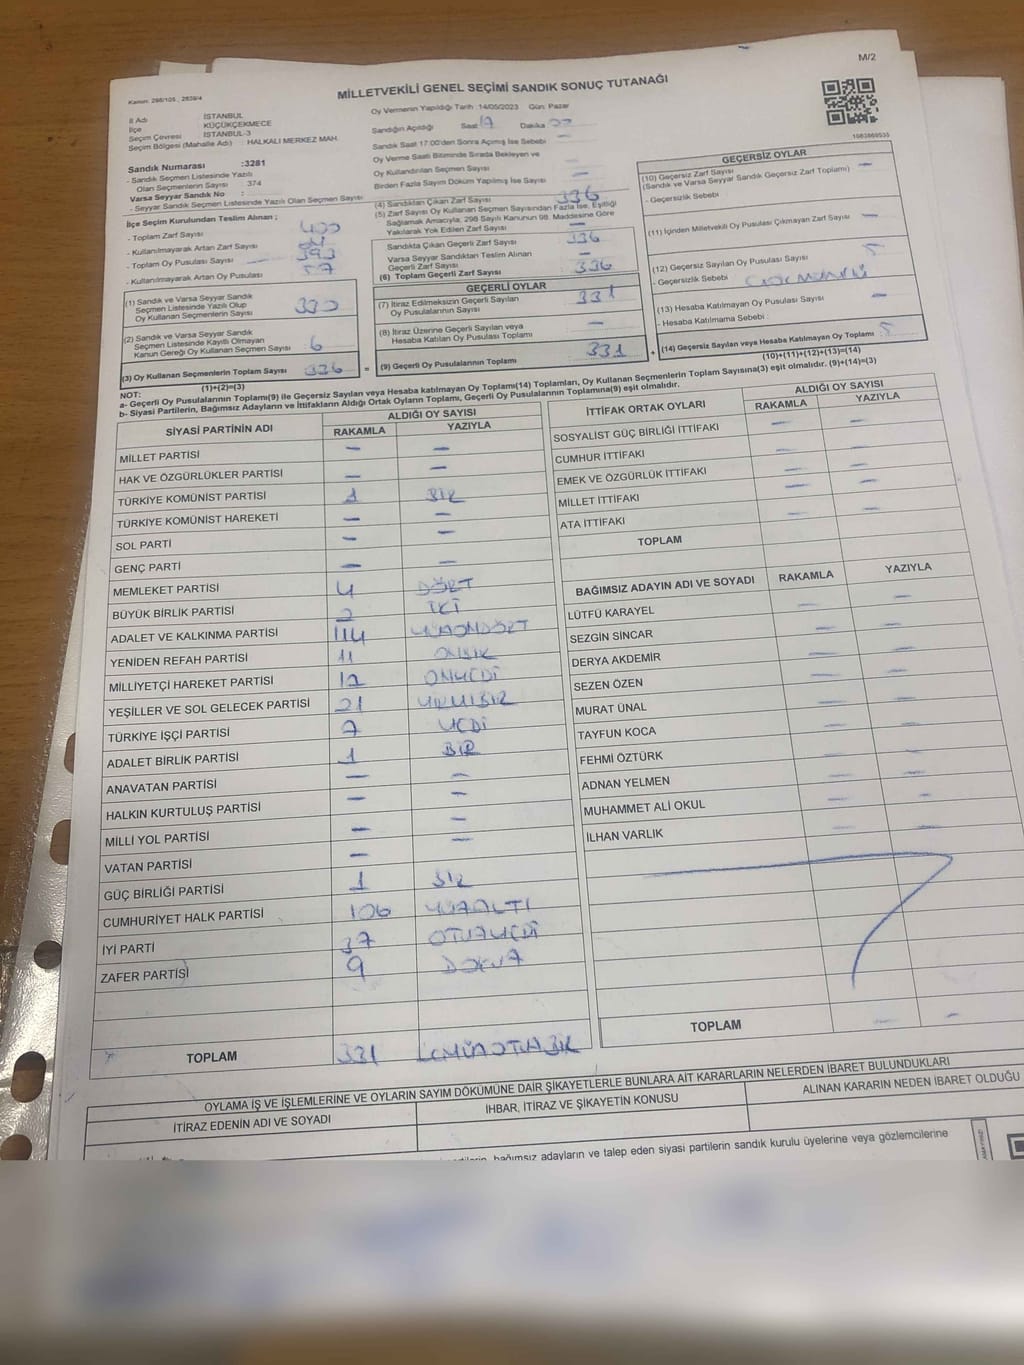 M/2
Kanun: 298/105, 2839/4
MİLLETVEKİLİ GENEL SEÇİMİ SANDIK SONUÇ TUTANAĞI
İl Adı İSTANBUL
İlçe KÜÇÜKÇEKMECE
Seçim Çevresi İSTANBUL-3
Seçim Bölgesi (Mahalle Adı) : HALKALI MERKEZ MAH.
Oy Vermenin Yapıldığı Tarih :14/05/2023 Gün: Pazar
Sandığın Açıldığı Saat 17 Dakika
Sandık Saat 17:00'den Sonra Açımış İse Sebebi —
Oy Verme Saati Bitiminde Sırada Bekleyen ve
Oy Kullandırılan Seçmen Sayısı —
Birden Fazla Sayım Döküm Yapılmış İse Sayısı —
1083869535
Sandık Numarası :3281
- Sandık Seçmen Listesinde Yazılı
Olan Seçmenlerin Sayısı : 374
Varsa Seyyar Sandık No :
- Seyyar Sandık Seçmen Listesinde Yazılı Olan Seçmen Sayısı
İlçe Seçim Kurulundan Teslim Alınan ;
- Toplam Zarf Sayısı 400
- Kullanılmayarak Artan Zarf Sayısı
- Toplam Oy Pusulası Sayısı 393
- Kullanılmayarak Artan Oy Pusulası 57
(1) Sandık ve Varsa Seyyar Sandık
Seçmen Listesinde Yazılı Olup
Oy Kullanan Seçmenlerin Sayısı 330
(2) Sandık ve Varsa Seyyar Sandık
Seçmen Listesinde Kayıtlı Olmayan
Kanun Gereği Oy Kullanan Seçmen Sayısı 6
(3) Oy Kullanan Seçmenlerin Toplam Sayısı 336
(1)+(2)=(3)
(4) Sandıktan Çıkan Zarf Sayısı 336
(5) Zarf Sayısı Oy Kullanan Seçmen Sayısından Fazla İse, Eşitliği
Sağlamak Amacıyla; 298 Sayılı Kanunun 98. Maddesine Göre
Yakılarak Yok Edilen Zarf Sayısı —
Sandıkta Çıkan Geçerli Zarf Sayısı 336
Varsa Seyyar Sandıktan Teslim Alınan
Geçerli Zarf Sayısı —
(6) Toplam Geçerli Zarf Sayısı 336
GEÇERLİ OYLAR
(7) İtiraz Edilmeksizin Geçerli Sayılan
Oy Pusulalarının Sayısı 331
(8) İtiraz Üzerine Geçerli Sayılan veya
Hesaba Katılan Oy Pusulası Toplamı —
= (9) Geçerli Oy Pusulalarının Toplamı 331 +
GEÇERSİZ OYLAR
(10) Geçersiz Zarf Sayısı
(Sandık ve Varsa Seyyar Sandık Geçersiz Zarf Toplamı) —
- Geçersizlik Sebebi
(11) İçinden Milletvekili Oy Pusulası Çıkmayan Zarf Sayısı —
(12) Geçersiz Sayılan Oy Pusulası Sayısı 5
- Geçersizlik Sebebi
(13) Hesaba Katılmayan Oy Pusulası Sayısı —
- Hesaba Katılmama Sebebi :
(14) Geçersiz Sayılan veya Hesaba Katılmayan Oy Toplamı 5
(10)+(11)+(12)+(13)=(14)
NOT:
a- Geçerli Oy Pusulalarının Toplamı(9) ile Geçersiz Sayılan veya Hesaba katılmayan Oy Toplamı(14) Toplamları, Oy Kullanan Seçmenlerin Toplam Sayısına(3) eşit olmalıdır. (9)+(14)=(3)
b- Siyasi Partilerin, Bağımsız Adayların ve İttifakların Aldığı Ortak Oyların Toplamı, Geçerli Oy Pusulalarının Toplamına(9) eşit olmalıdır.
SİYASİ PARTİNİN ADI ALDIĞI OY SAYISI
RAKAMLA YAZIYLA
MİLLET PARTİSİ — —
HAK VE ÖZGÜRLÜKLER PARTİSİ — —
TÜRKİYE KOMÜNİST PARTİSİ 1 BİR
TÜRKİYE KOMÜNİST HAREKETİ — —
SOL PARTİ — —
GENÇ PARTİ — —
MEMLEKET PARTİSİ 4 DÖRT
BÜYÜK BİRLİK PARTİSİ 2 İKİ
ADALET VE KALKINMA PARTİSİ 114 YÜZONDÖRT
YENİDEN REFAH PARTİSİ 11 ONBİR
MİLLİYETÇİ HAREKET PARTİSİ 17 ONYEDİ
YEŞİLLER VE SOL GELECEK PARTİSİ 21 YİRMİBİR
TÜRKİYE İŞÇİ PARTİSİ 7 YEDİ
ADALET BİRLİK PARTİSİ 1 BİR
ANAVATAN PARTİSİ — —
HALKIN KURTULUŞ PARTİSİ — —
MİLLİ YOL PARTİSİ — —
VATAN PARTİSİ — —
GÜÇ BİRLİĞİ PARTİSİ 1 BİR
CUMHURİYET HALK PARTİSİ 106 YÜZALTI
İYİ PARTİ 37 OTUZYEDİ
ZAFER PARTİSİ 9 DOKUZ
TOPLAM 331 ÜÇYÜZOTUZBİR
İTTİFAK ORTAK OYLARI ALDIĞI OY SAYISI
RAKAMLA YAZIYLA
SOSYALİST GÜÇ BİRLİĞİ İTTİFAKI — —
CUMHUR İTTİFAKI — —
EMEK VE ÖZGÜRLÜK İTTİFAKI — —
MİLLET İTTİFAKI — —
ATA İTTİFAKI — —
TOPLAM
BAĞIMSIZ ADAYIN ADI VE SOYADI RAKAMLA YAZIYLA
LÜTFÜ KARAYEL — —
SEZGİN SİNCAR — —
DERYA AKDEMİR — —
SEZEN ÖZEN — —
MURAT ÜNAL — —
TAYFUN KOCA — —
FEHMİ ÖZTÜRK — —
ADNAN YELMEN — —
MUHAMMET ALİ OKUL — —
İLHAN VARLIK — —
TOPLAM — —
OYLAMA İŞ VE İŞLEMLERİNE VE OYLARIN SAYIM DÖKÜMÜNE DAİR ŞİKAYETLERLE BUNLARA AİT KARARLARIN NELERDEN İBARET BULUNDUKLARI
İTİRAZ EDENİN ADI VE SOYADI İHBAR, İTİRAZ VE ŞİKAYETİN KONUSU ALINAN KARARIN NEDEN İBARET OLDUĞU
bağımsız adayların ve talep eden siyasi partilerin sandık kurulu üyelerine veya gözlemcilerine